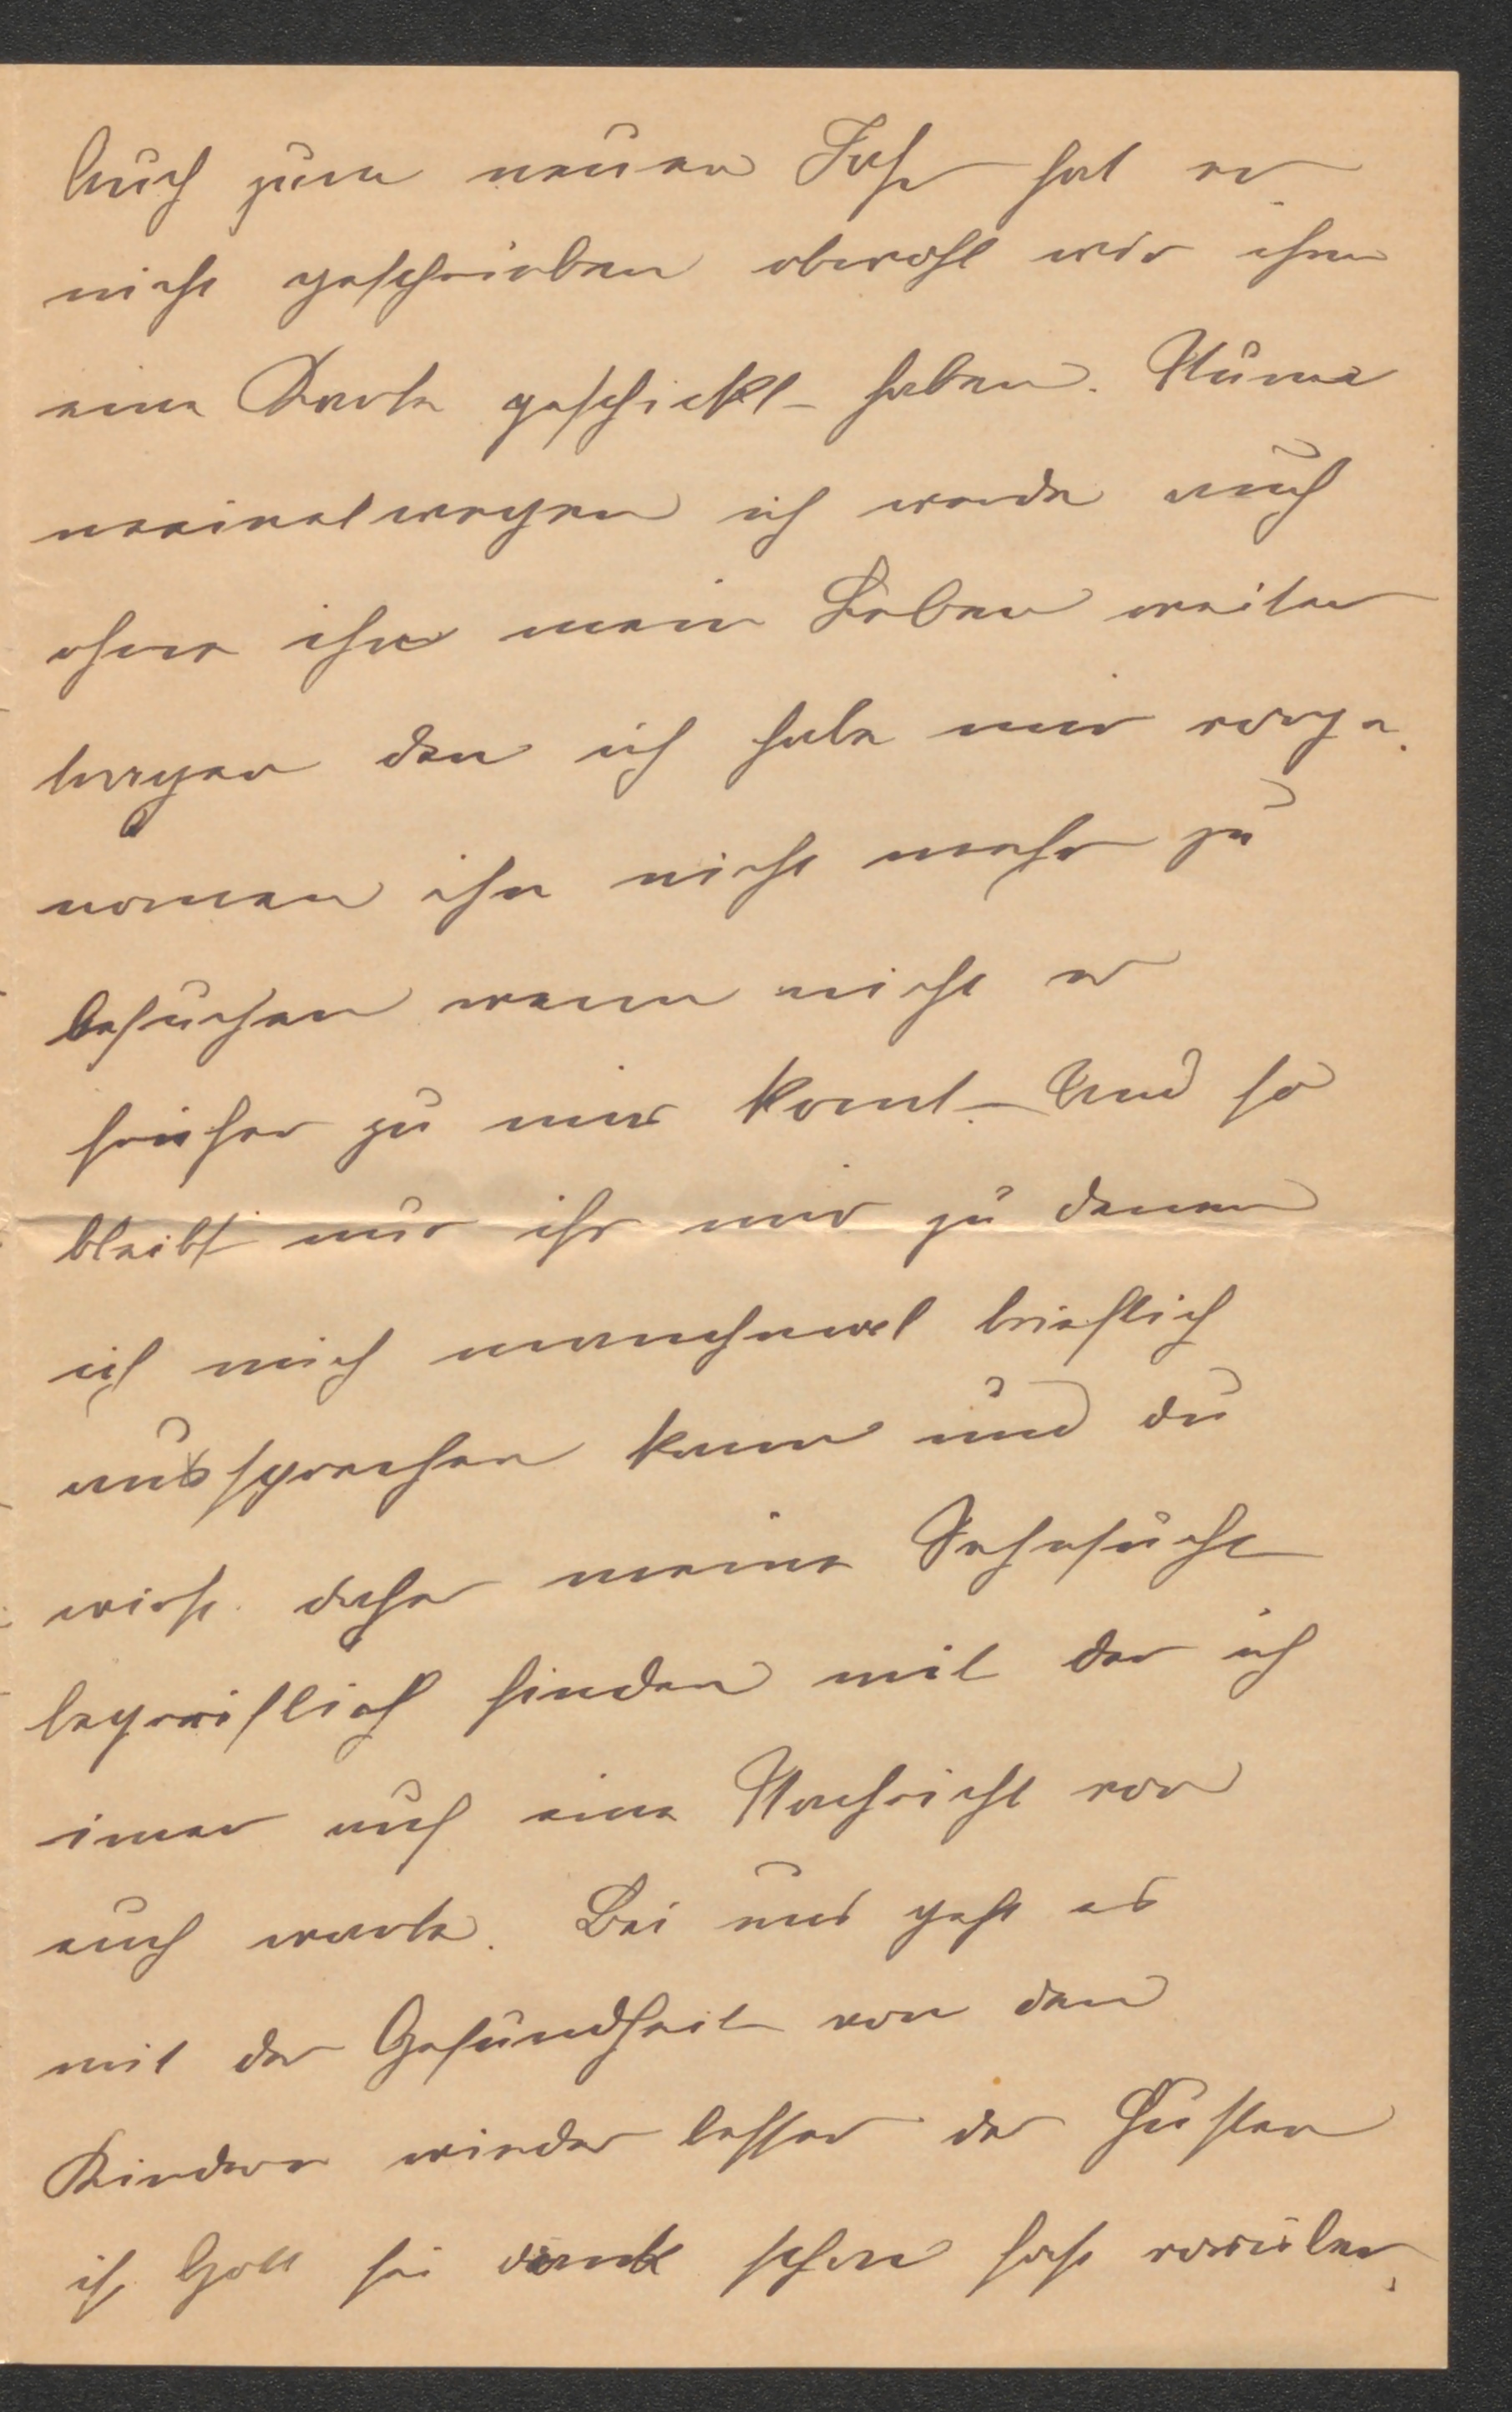 Auch zum neuen Jahr hat er
nicht geschrieben obwohl wir ihm
eine Karte geschickt haben. Nun
meinetwegen ich werde auch
ohne ihn mein Leben weiter
tragen den ich habe mir vorge-
nomen ihn nicht mehr zu
besuchen wenn nicht er
früher zu mir komt. Und so
bleibt nur ihr mir zu denen
ich mich manchmal brieflich
aussprechen kann und du
wirst daher meine Sehnsucht
begreiflich finden mit der ich
imer auf eine Nachricht von
euch warte. Bei uns geht es
mit der Gesundheit von den
Kindern wieder besser der Husten
ist Gott sei dank schon fast vorüber,